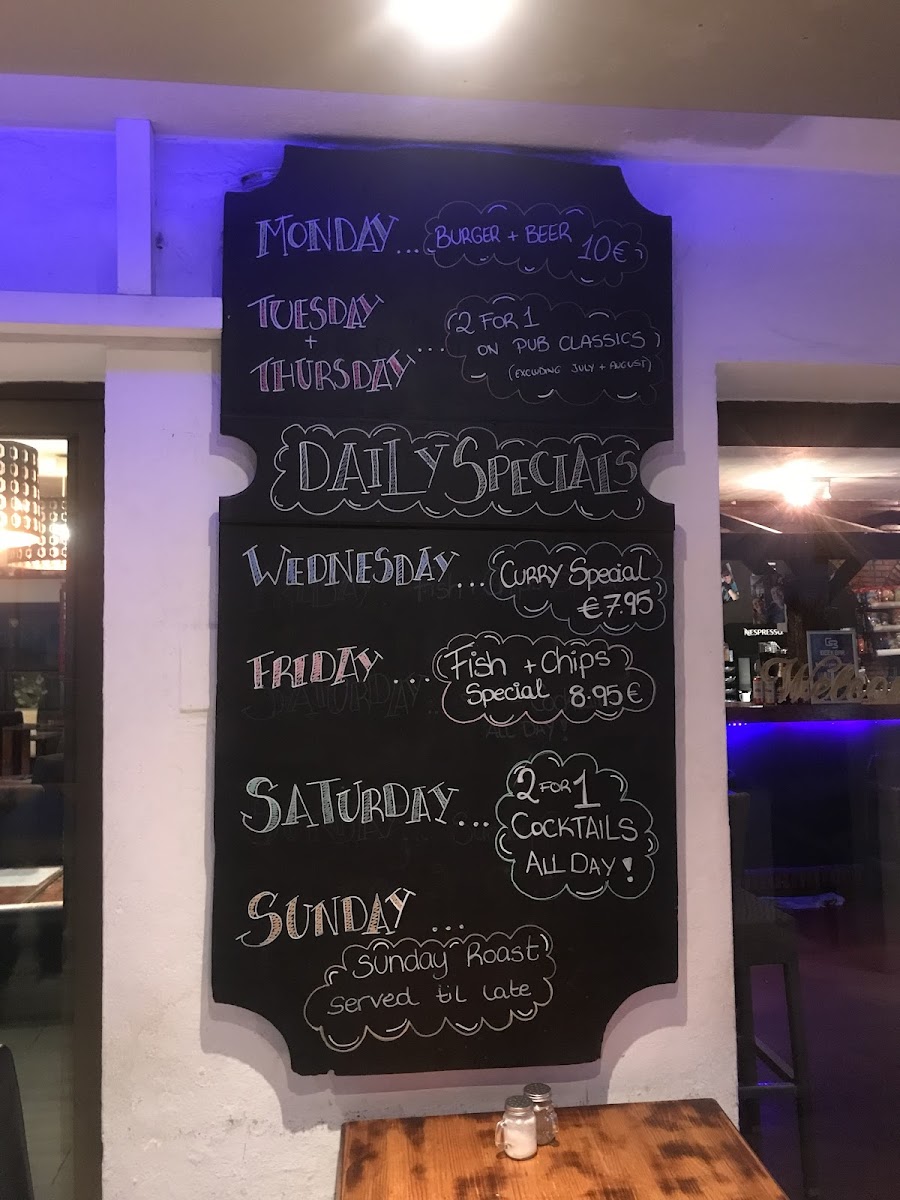 MONDAY... BURGER + BEER 10€
TUESDAY
+
THURSDAY
... 2 FOR 1
ON PUB CLASSICS
(EXCLUDING JULY + AUGUST)
DAILY SPECIALS
WEDNESDAY... CURRY Special
€7.95
FRIDAY ... Fish + Chips
Special 8.95€
SATURDAY... 2 FOR 1
COCKTAILS
ALL DAY!
SUNDAY ...
Sunday Roast
Served til late
NESPRESSO